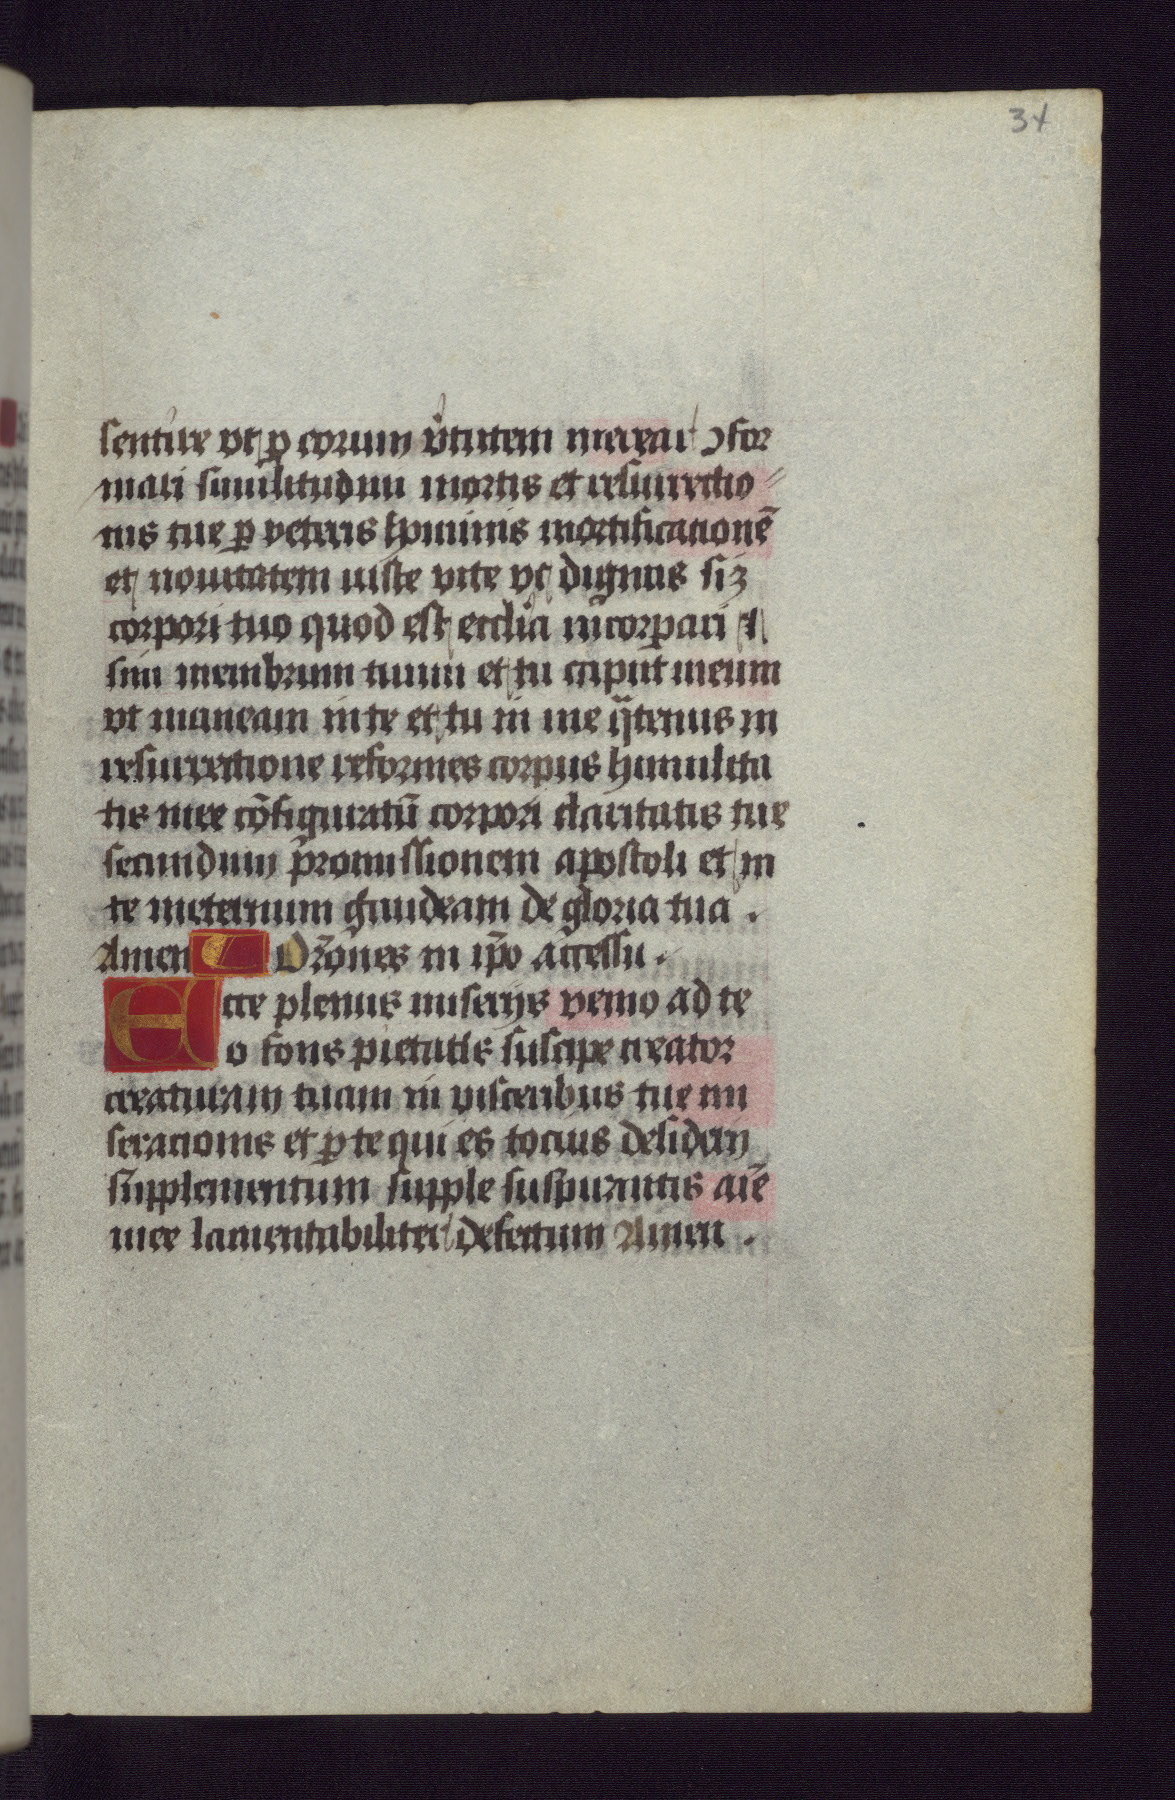 34
sentire vt p̱ eorum v̓tutem merear ↄfor
mari similitudini mortis et resurrectio
nis tue p̱ veteris hoĩnis mortificationē
et nouitatem iuste vite vt dignus siʒ
corpori tuo quod est eccl̓ia incorporari
sim membrum tuum et tu caput meum
vt maneam in te et tu in me q̈tenus in
resurrectione reformes corpus humilita
tis mee cōfiguratū corpori claritatis tue
secundum p̓romissionem apostoli et in
te ineternum gaudeam de gloria tua .
Amen Or̃ones in ip̄o accessu .
Ecce plenus miserijs venio ad te
o fons pietatis suscipe creator
creaturam tuam in visceribus tue mi
seracionis et p̱ te qui es tocius desiderij
supplementum supple suspirantis aīe
mee lamentabiliter defectum Amen .